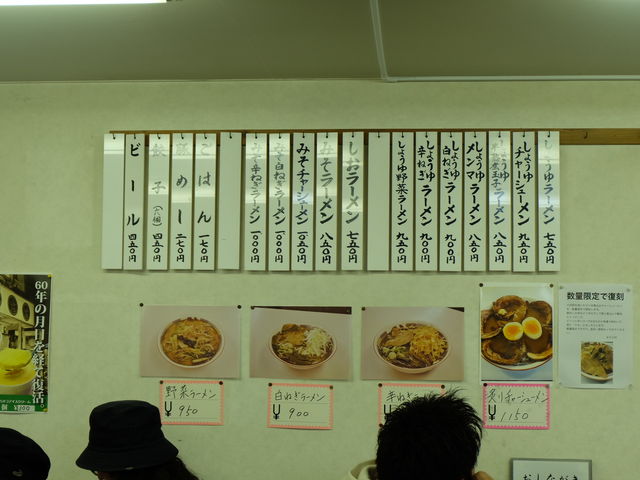 しょうゆラーメン 七五〇円
しょうゆチャーシューメン 九五〇円
しょうゆ ラーメン 八五〇円
しょうゆメンマラーメン 八五〇円
しょうゆ白ねぎラーメン 九〇〇円
しょうゆ辛ねぎラーメン 九〇〇円
しょうゆ野菜ラーメン 九五〇円
しおラーメン 七五〇円
みそラーメン 八五〇円
みそチャーシューメン 一〇五〇円
みそ白ねぎラーメン 一〇〇〇円
みそ辛ねぎラーメン 一〇〇〇円
ごはん 一七〇円
豚めし 二七〇円
餃子 四五〇円
ビール 四五〇円
60年の月日を経て復活
数量限定で復刻
野菜ラーメン
¥950
白ねぎラーメン
¥900
辛ねぎラーメン
¥
炙りチャーシューメン
¥1150
おしながき